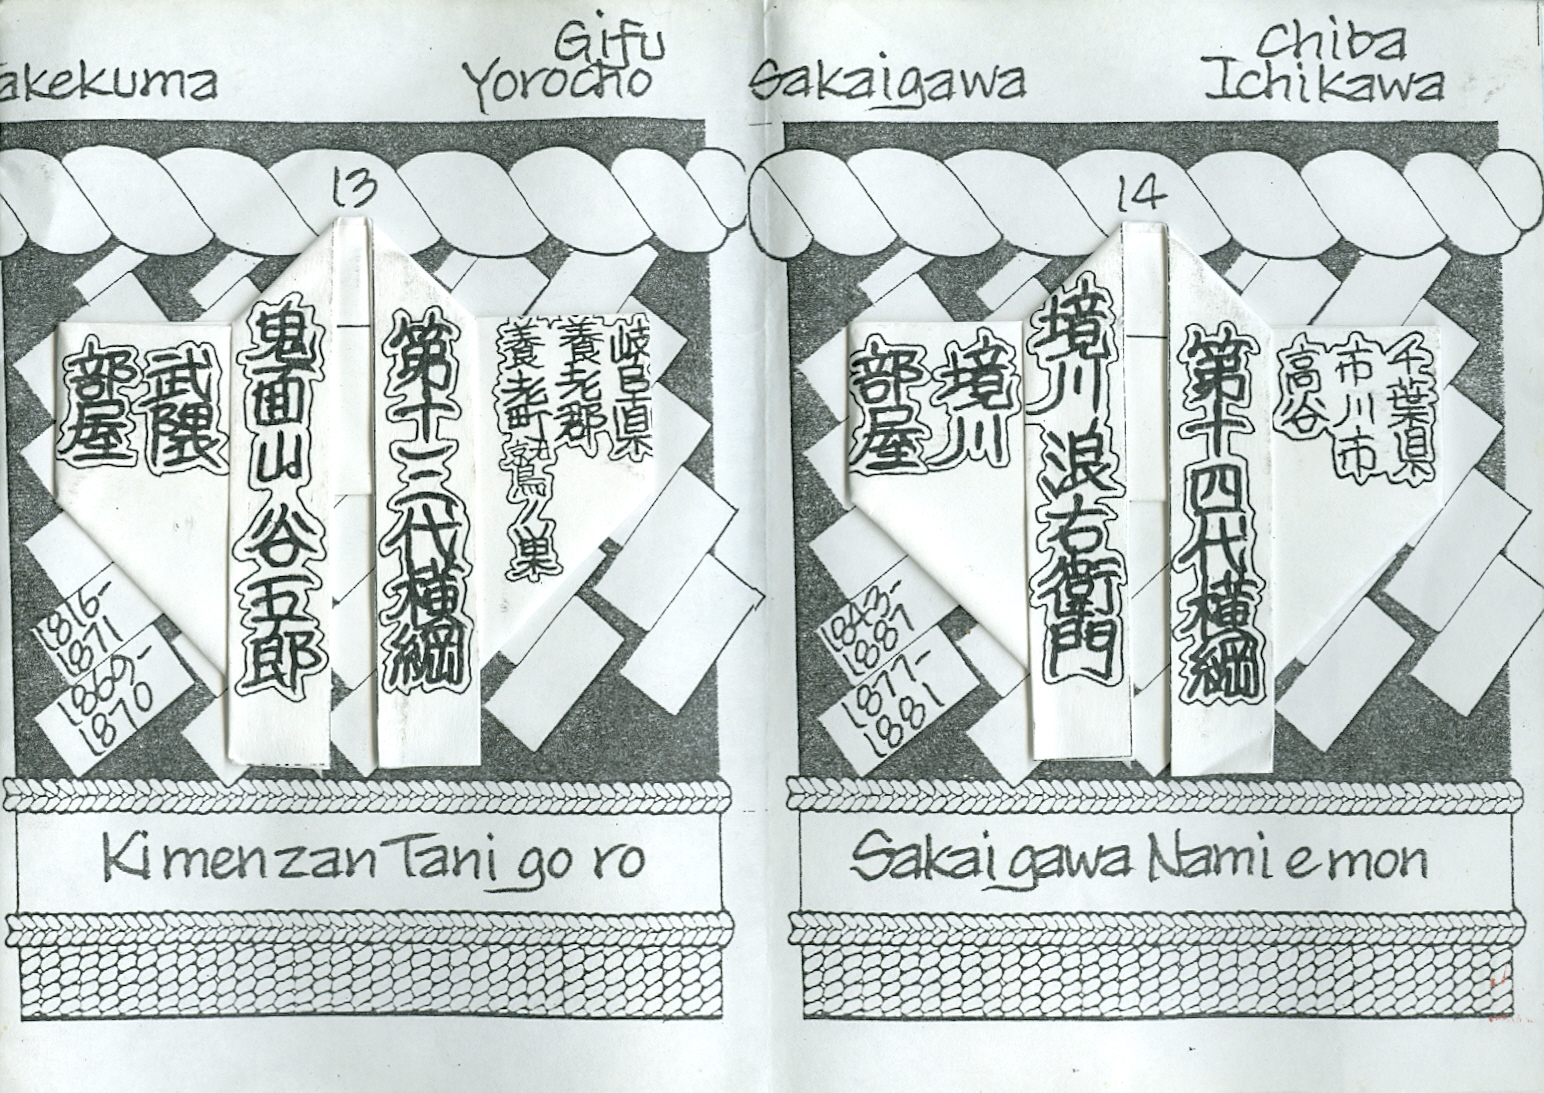 akekuma
Gifu
Yorocho
13
岐阜県
養老郡
養老町
鷲ノ巣
第十三代横綱
鬼面山谷五郎
武隈
部屋
1816-
1871
1869-
1870
Kimenzan Tanigoro
Sakaigawa
Chiba
Ichikawa
14
千葉県
市川市
高谷
第十四代横綱
境川浪右衛門
境川
部屋
1843-
1887
1877-
1881
Sakaigawa Namiemon